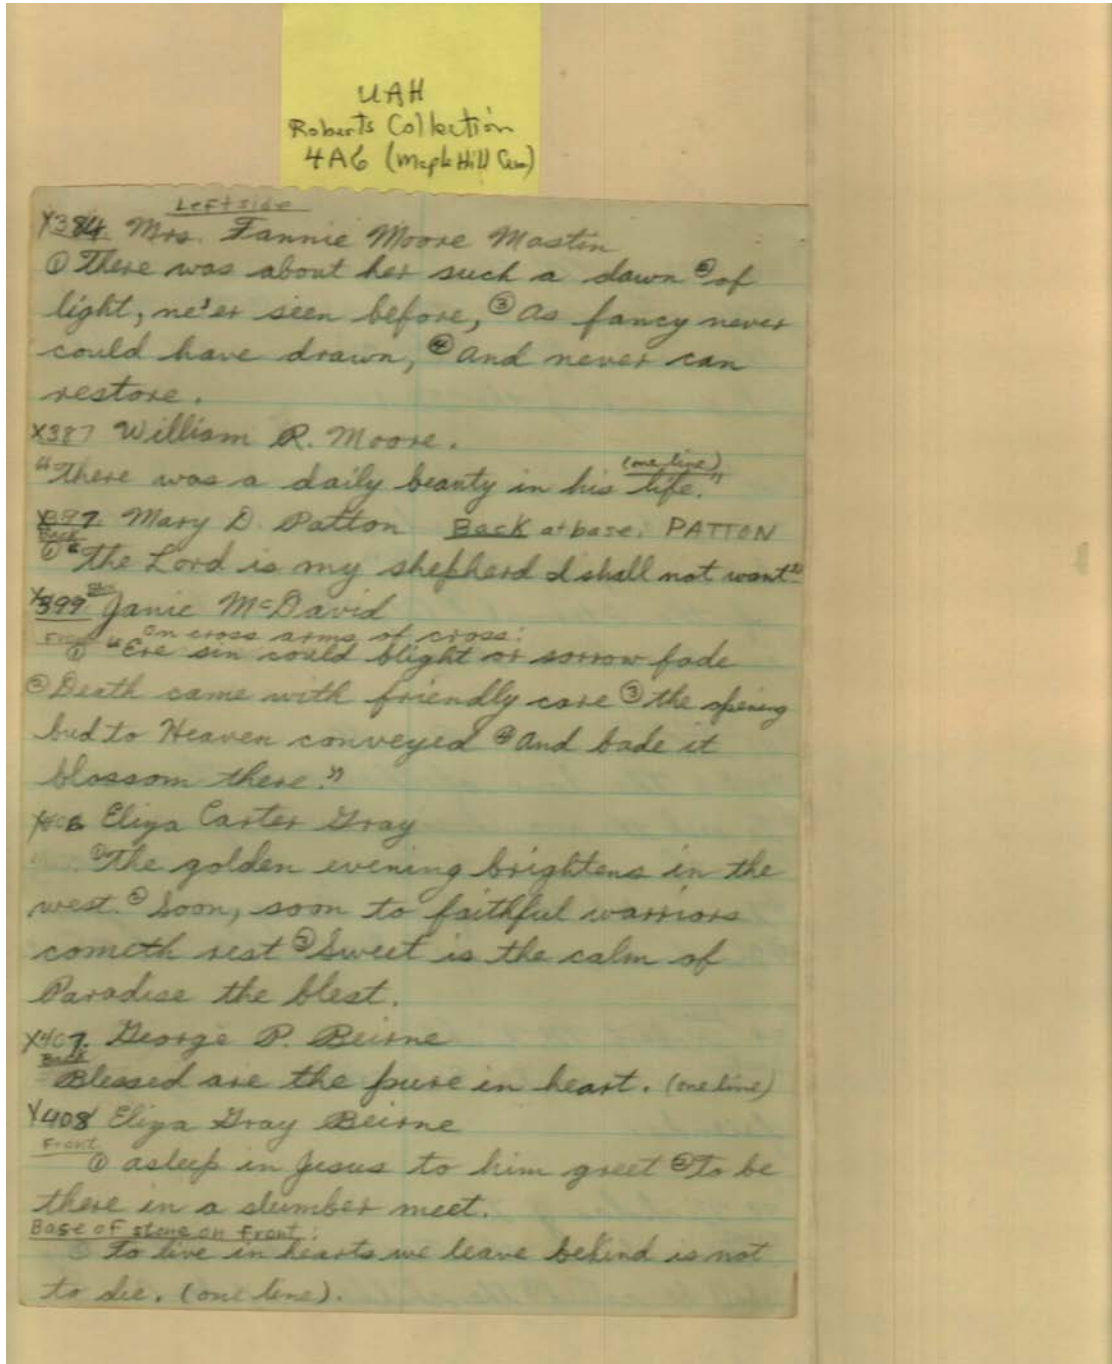 UAH
Roberts Collection
4A6 (Maple Hill Cem)
Left side
X384. Mrs. Fannie Moore Mastin
① There was about her such a dawn ② of
light, ne'er seen before, ③ As fancy never
could have drawn, ④ And never can
restore.
X387 William R. Moore.
(one line)
"There was a daily beauty in his life."
X397. Mary D. Patton Back at base: PATTON
Back
① "The Lord is my shepherd I shall not want"
X399 Janie McDavid
On cross arms of cross:
Front ① "Ere sin could blight or sorrow fade
② Death came with friendly care ③ the opening
bud to Heaven conveyed ④ And bade it
blossom there."
Eliza Carter Gray
① The golden evening brightens in the
west. ② Soon, soon to faithful warriors
cometh rest ③ Sweet is the calm of
Paradise the blest.
X407. George P. Beirne
Back
Blessed are the pure in heart. (one line)
X408 Eliza Gray Beirne
Front
① asleep in Jesus to him greet ② To be
there in a slumber meet.
Base of stone on Front:
To live in hearts we leave behind is not
to die. (one line).